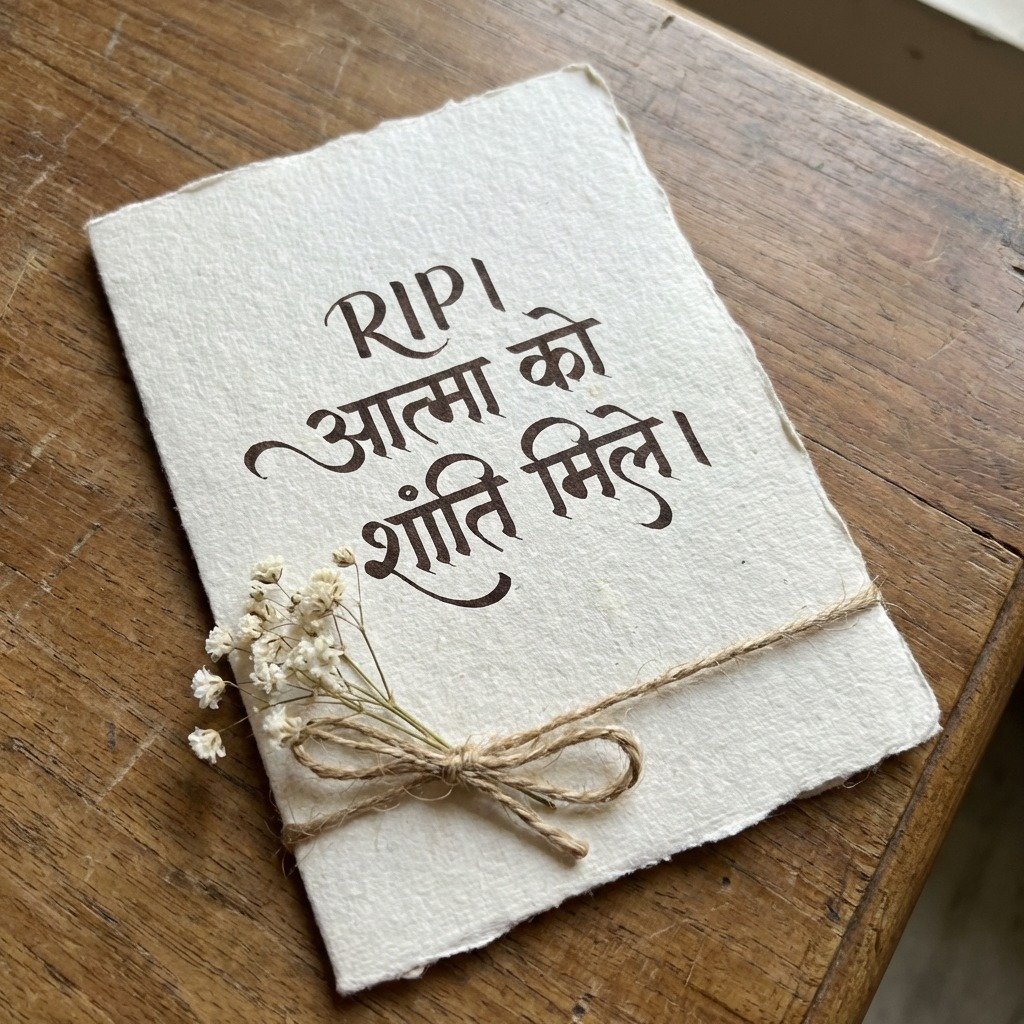 RIP।
आत्मा को
शांति मिले।